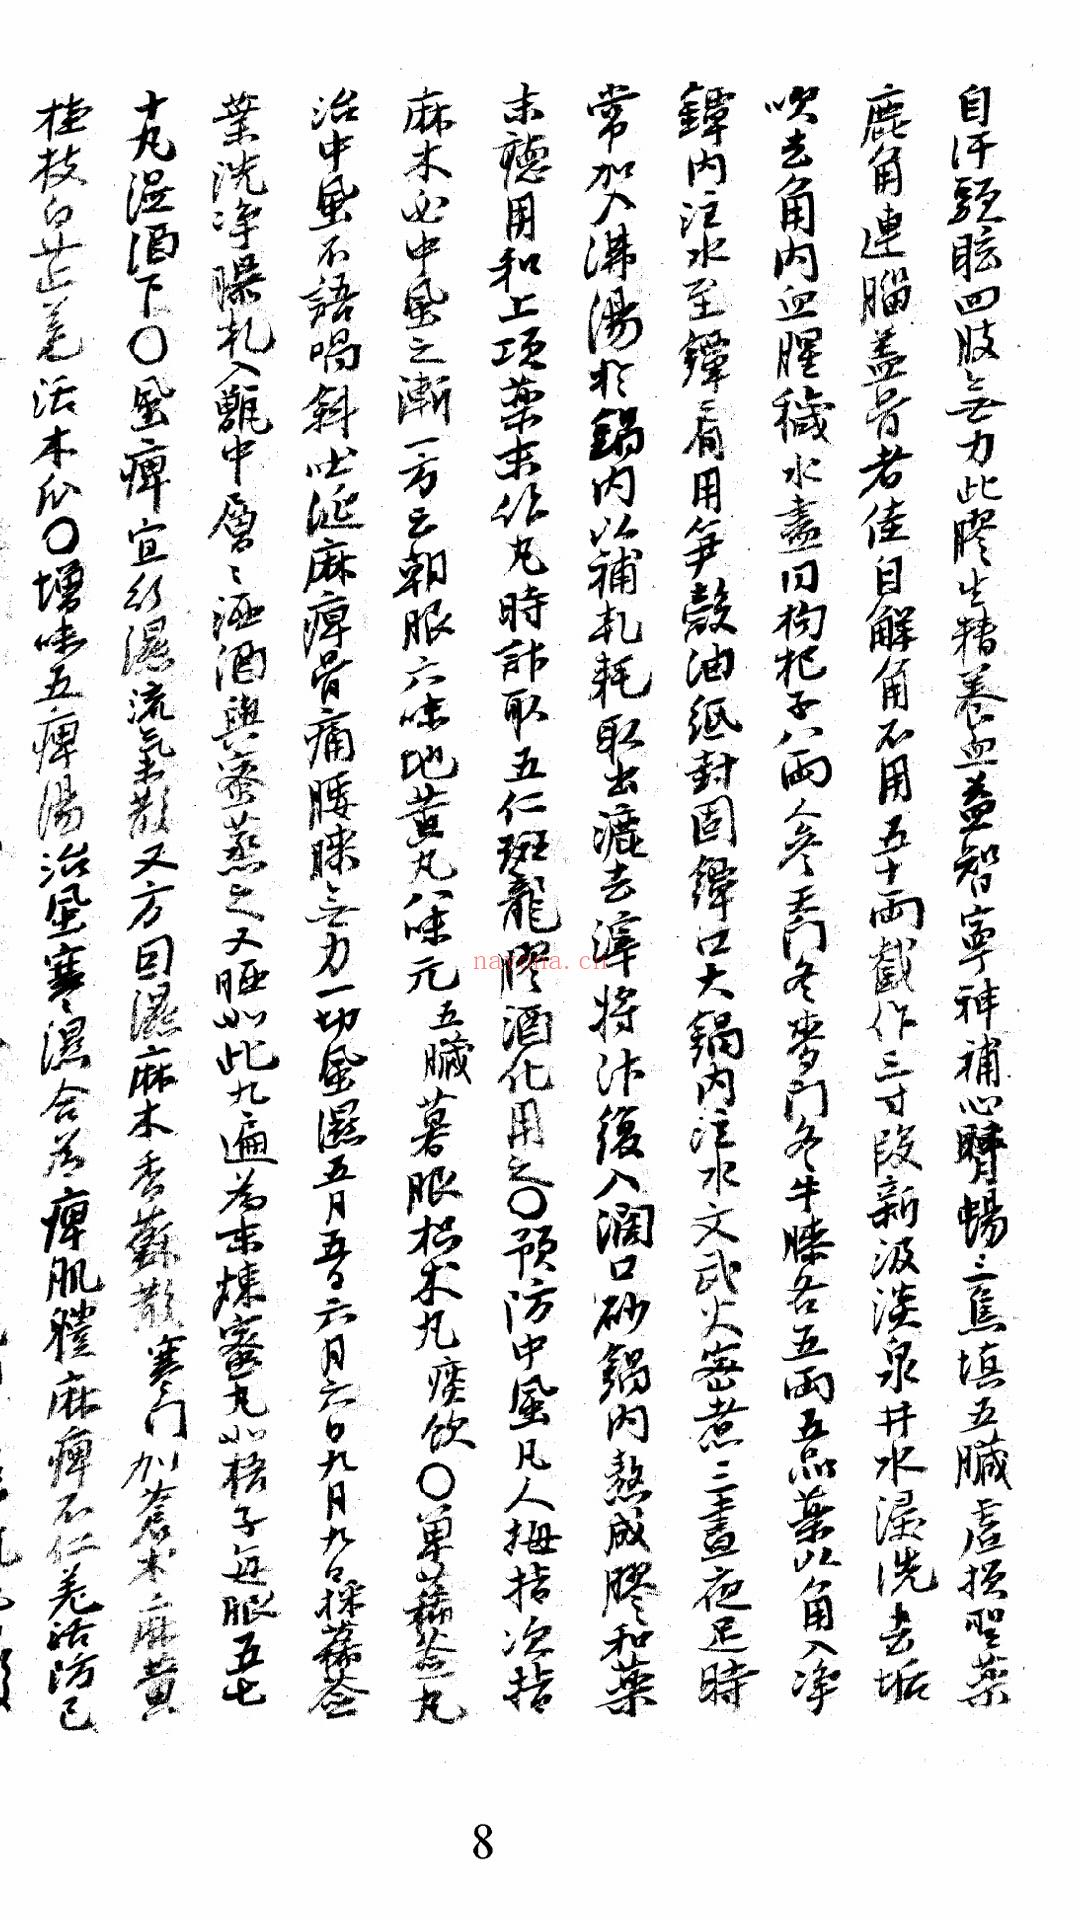 自汗頭眩四肢无力此膠生精养血益智寧神補心腎暢三焦填五臟虛損聖薬
鹿角連腦盖骨者佳自解角不用五十兩截作三寸段新汲淡泉井水浸洗去垢
吹去角內血腥穢水盡同枸杞子八兩人参天門冬麥門冬牛膝各五兩五品薬以角入净
罈內注水至罈肩用笋殼油紙封固罈口大鍋內注水文武火密煮三晝夜足時
常加入沸湯於鍋內以補乾耗取出漉去滓将汁復入濶口砂鍋內熬成膠和薬
末聽用和上項薬末作丸時計取五仁斑龍膠酒化用之〇預防中風凡人拇指次指
麻木必中風之漸一方云朝服六味地黄丸八味元 五臟 暮服枳术丸痰飲〇单豨薟丸
治中風不語喎斜吐涎麻痺骨痛腰膝无力一切風濕五月五日六月六日九月九日採豨薟
葉洗净曝乾入甑中層々洒酒與蜜蒸之又晒如此九遍為末煉蜜丸如梧子每服五七
十丸温酒下〇風痺宜行濕流氣散又方曰濕麻木香蘇散寒門加蒼术麻黄
桂枝白芷羌活木瓜〇增味五痺湯治風寒濕合為痺肌體麻痺不仁羌活防已
nayona.cn
8